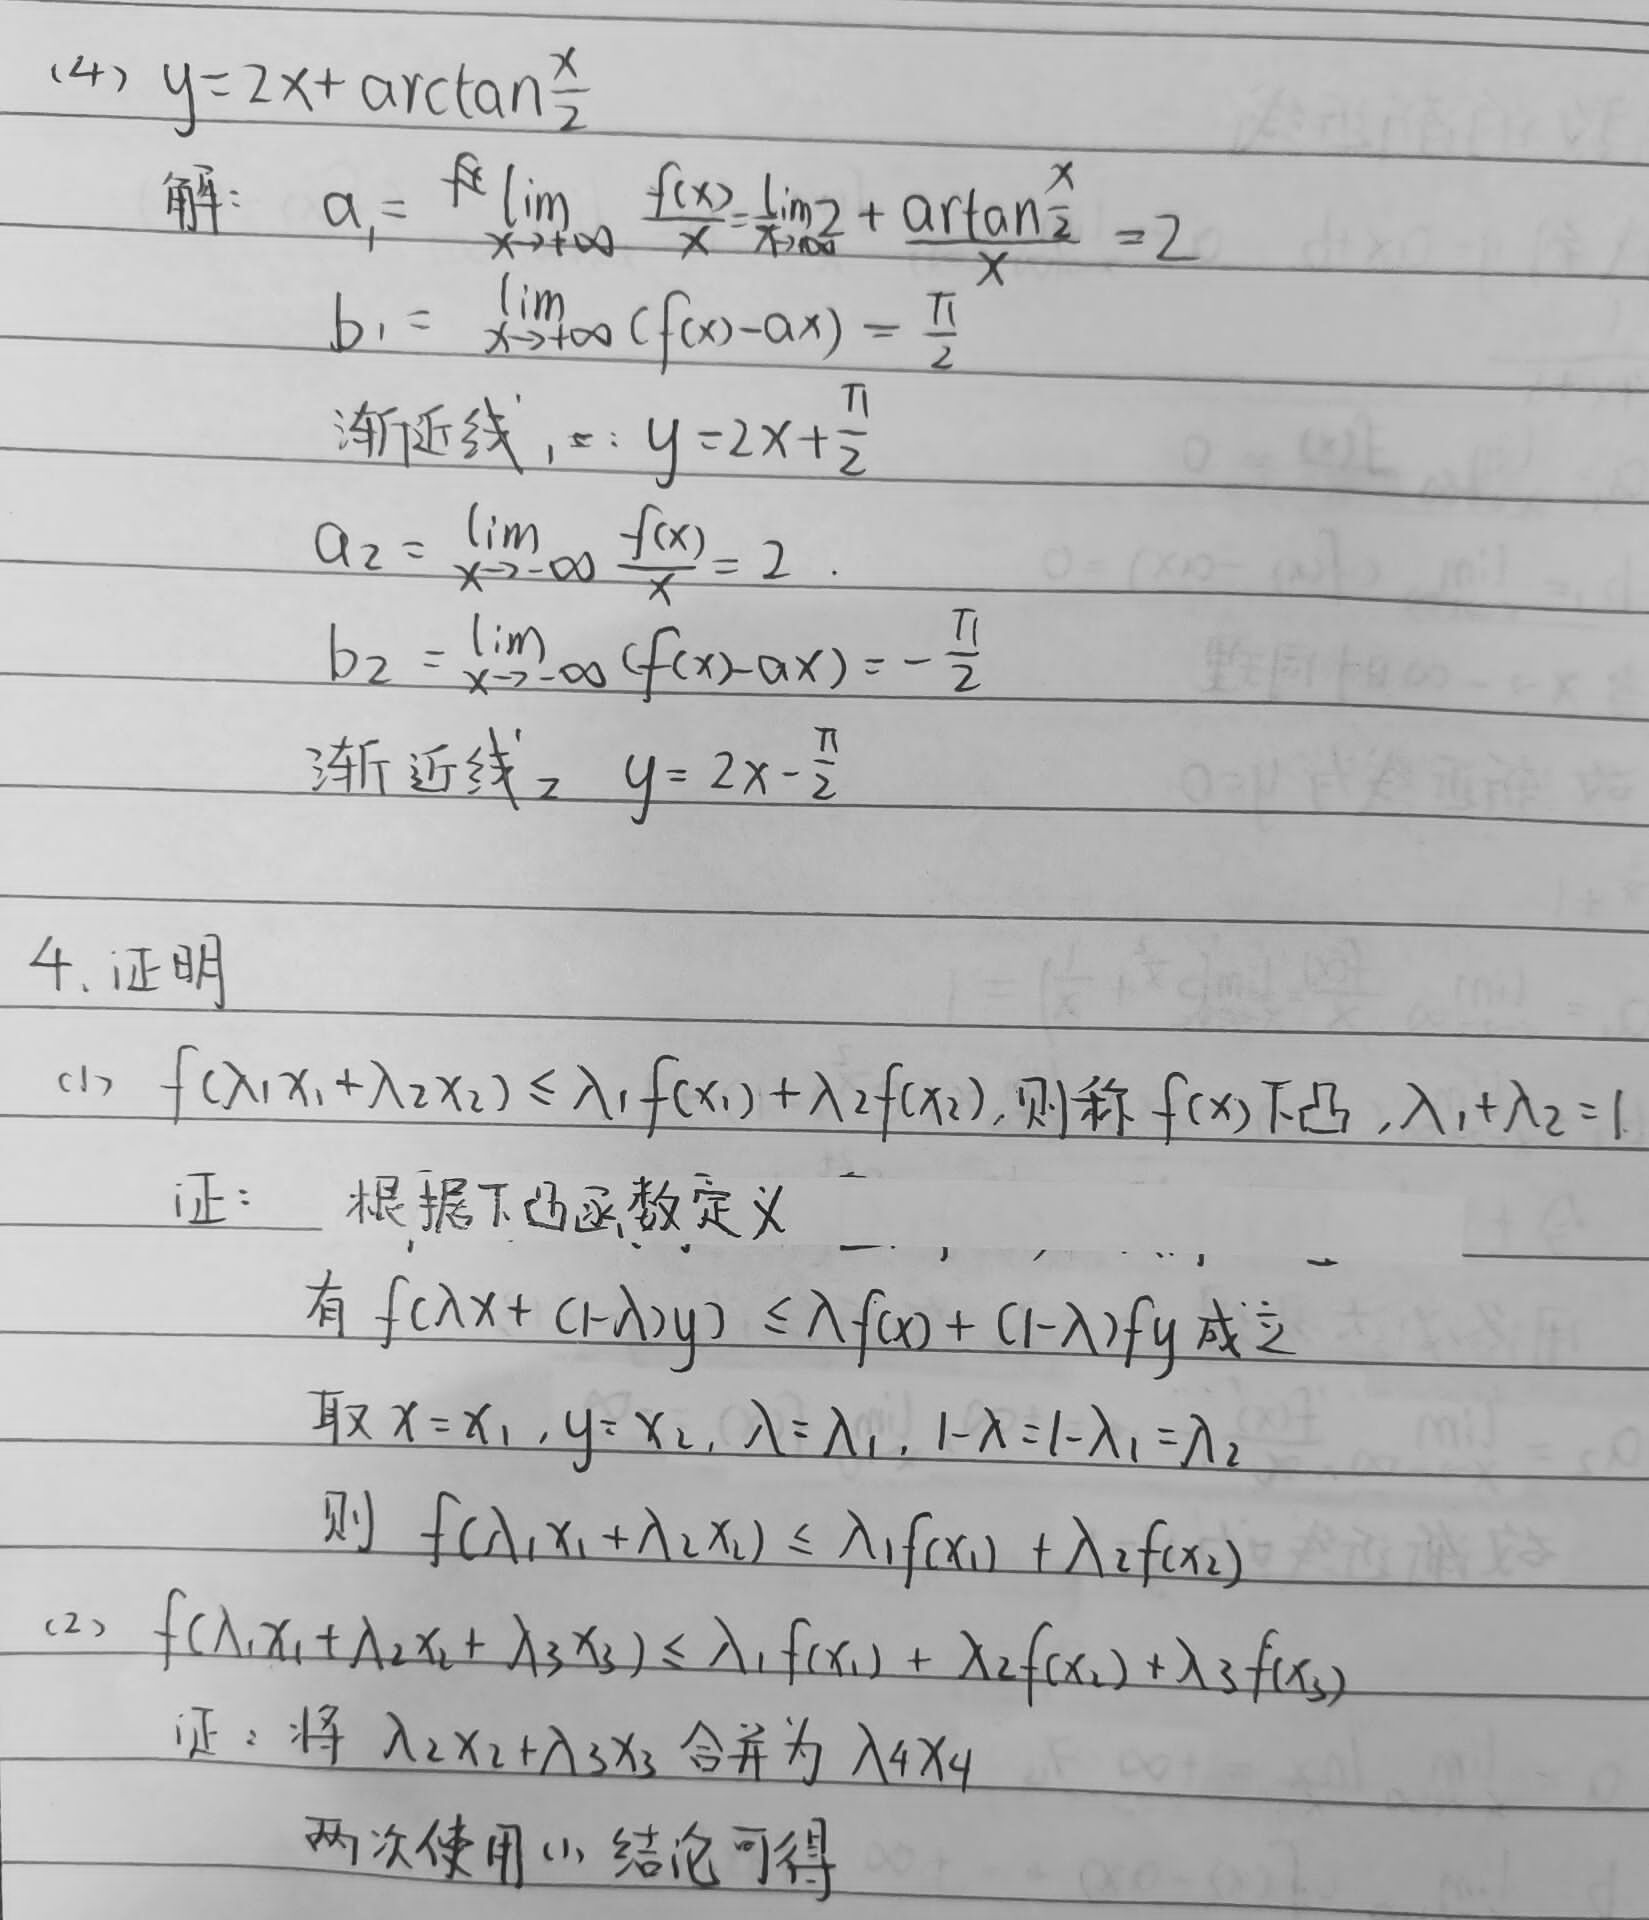 (4) y=2x+arctan x/2
解: a₁= lim x→+∞ f(x)/x = lim x→+∞ 2 + artan x/2 / x = 2
b₁ = lim x→+∞ (f(x)-ax) = π/2
渐近线₁ : y=2x+π/2
a₂ = lim x→-∞ f(x)/x = 2 .
b₂ = lim x→-∞ (f(x)-ax) = -π/2
渐近线₂ y=2x-π/2
4. 证明
(1) f(λ₁x₁+λ₂x₂) ≤ λ₁f(x₁)+λ₂f(x₂), 则称 f(x) 下凸, λ₁+λ₂=1.
证: 根据下凸函数定义
有 f(λx+(1-λ)y) ≤ λf(x)+(1-λ)fy 成立
取 x=x₁, y=x₂, λ=λ₁, 1-λ=1-λ₁=λ₂
则 f(λ₁x₁+λ₂x₂) ≤ λ₁f(x₁)+λ₂f(x₂)
(2) f(λ₁x₁+λ₂x₂+λ₃x₃) ≤ λ₁f(x₁)+λ₂f(x₂)+λ₃f(x₃)
证: 将 λ₂x₂+λ₃x₃ 合并为 λ₄x₄
两次使用 (1) 结论可得